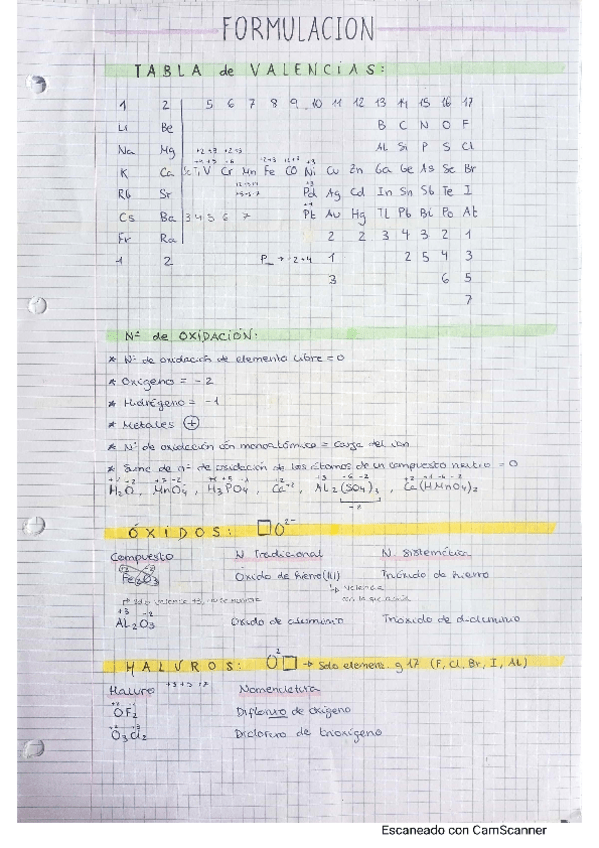 FORMULACION
TABLA de VALENCIAS:
1 2 5 6 7 8 9 10 11 12 13 14 15 16 17
Li Be B C N O F
Na Mg Al Si P S Cl
K Ca Sc Ti V Cr Mn Fe CO Ni Cu Zn Ga Ge As Se Br
Rb Sr Pd Ag Cd In Sn Sb Te I
Cs Ba 3 4 5 6 7 Pt Au Hg TL Pb Bi Po At
Fr Ra 2 2 3 4 3 2 1
1 2 1 2 5 4 3
3 6 5
7
Nº de OXIDACIÓN:
* Nº de oxidación de elemento libre = 0
* Oxígeno = -2
* Hidrógeno = -1
* Metales (+)
* Nº de oxidación ión monoatómico = carga del ion
* Suma de nº de oxidación de los átomos de un compuesto neutro = 0
H2O, MnO4, H3PO4, Ca+2, AL2(SO4)3, Ca(HMnO4)2
ÓXIDOS: □O2-
Compuesto N Tradicional N. Sistemática
Fe2O3 Óxido de hierro(III) Trióxido de hierro
valencia
+3 -2
AL2O3 Óxido de aluminio Trióxido de d-aluminio
HALUROS: O2□ → Solo element. g 17 (F, Cl, Br, I, At)
Haluro +3 +5 +7 Nomenclatura
OF2 Difloruro de oxígeno
O3Cl2 Dicloruro de trioxígeno
Escaneado con CamScanner